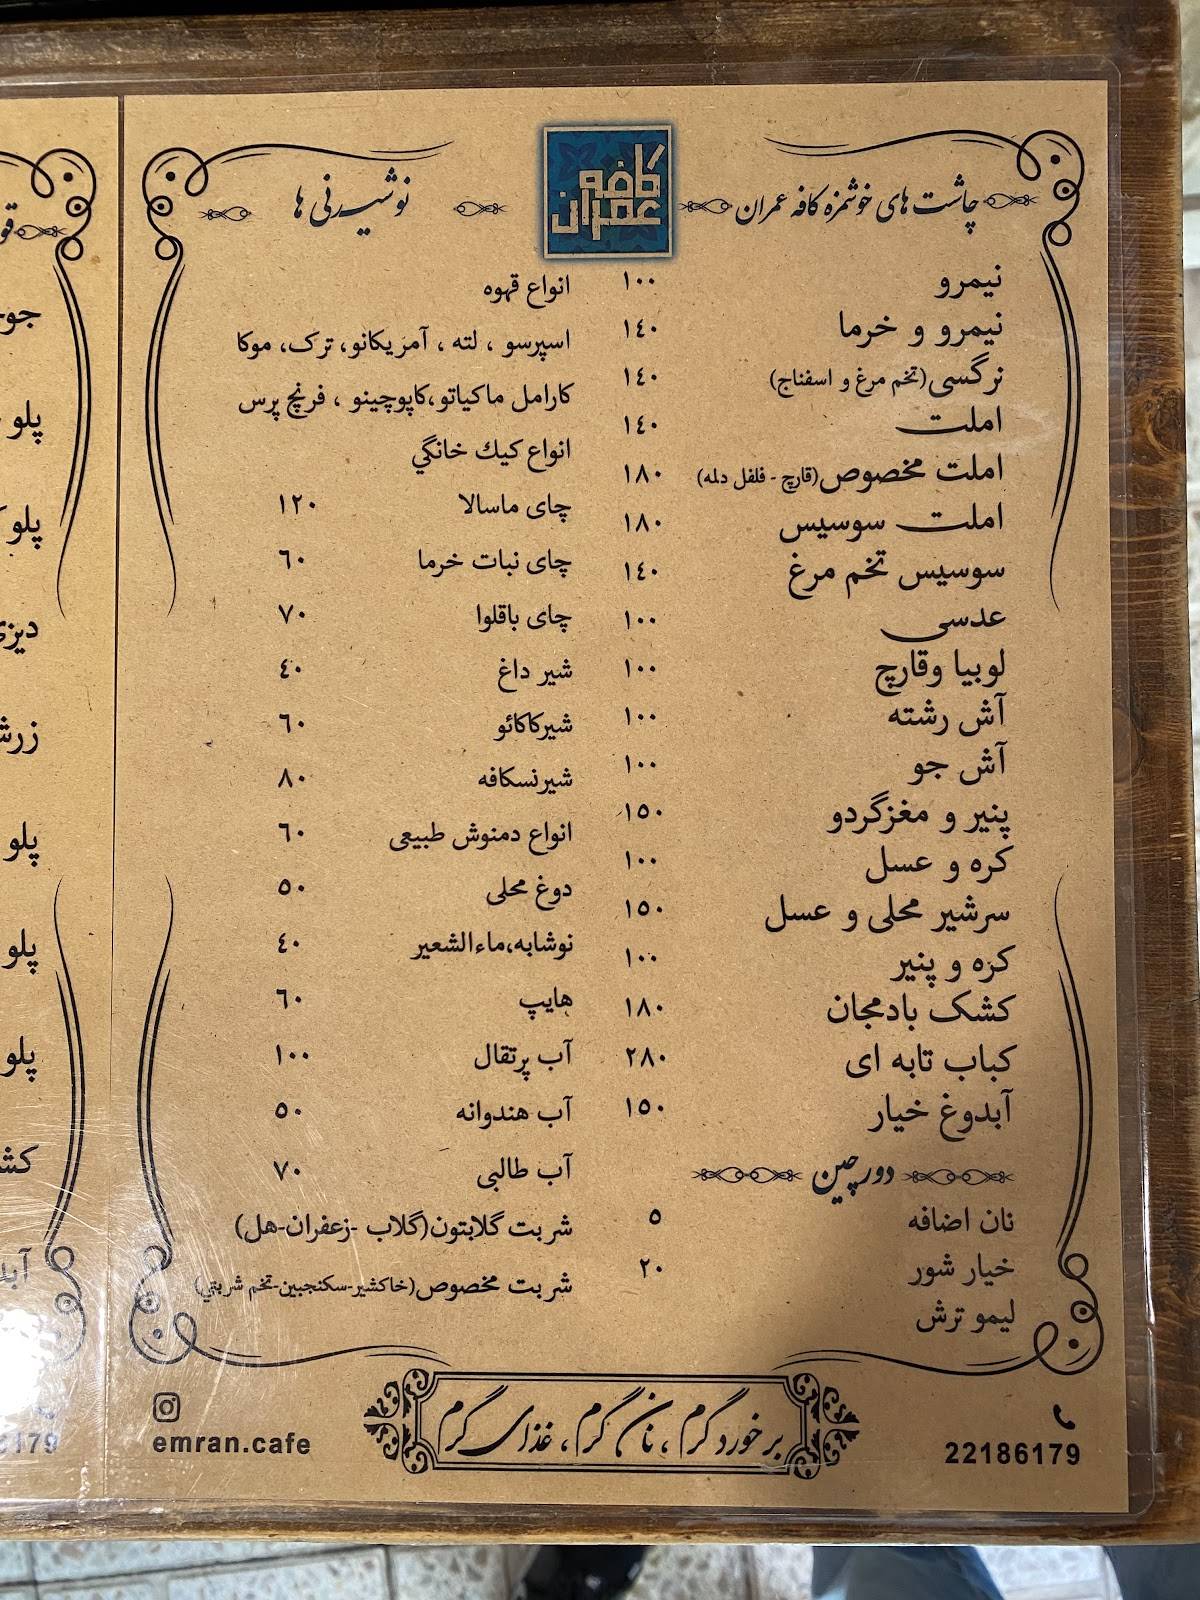 کافه عمران
چاشت های خوشمزه کافه عمران
نیمرو ۱۰۰
نیمرو و خرما ۱٤۰
نرگسی(تخم مرغ و اسفناج) ۱٤۰
املت ۱٤۰
املت مخصوص(قارچ - فلفل دلمه) ۱۸۰
املت سوسیس ۱۸۰
سوسیس تخم مرغ ۱٤۰
عدسی ۱۰۰
لوبیا وقارچ ۱۰۰
آش رشته ۱۰۰
آش جو ۱۰۰
پنیر و مغزگردو ۱۵۰
کره و عسل ۱۰۰
سرشیر محلی و عسل ۱۵۰
کره و پنیر ۱۰۰
کشک بادمجان ۱۸۰
کباب تابه ای ۲۸۰
آبدوغ خیار ۱۵۰
دورچین
نان اضافه ۵
خیار شور ۲۰
لیمو ترش
نوشیدنی ها
انواع قهوه
اسپرسو ، لته ، آمریکانو، ترک، موکا
کارامل ماکیاتو،کاپوچینو ، فرنچ پرس
انواع كيك خانگي
چای ماسالا ۱۲۰
چای نبات خرما ٦۰
چای باقلوا ۷۰
شیر داغ ٤۰
شیرکاکائو ٦۰
شیرنسکافه ۸۰
انواع دمنوش طبیعی ٦۰
دوغ محلی ۵۰
نوشابه،ماءالشعیر ٤۰
هایپ ٦۰
آب پرتقال ۱۰۰
آب هندوانه ۵۰
آب طالبی ۷۰
شربت گلابتون(گلاب -زعفران-هل)
شربت مخصوص(خاکشیر-سکنجبین-تخم شربتي)
برخورد گرم ، نان گرم ، غذای گرم
22186179
emran.cafe
پلو
پلو
پلو
پلو
پلو